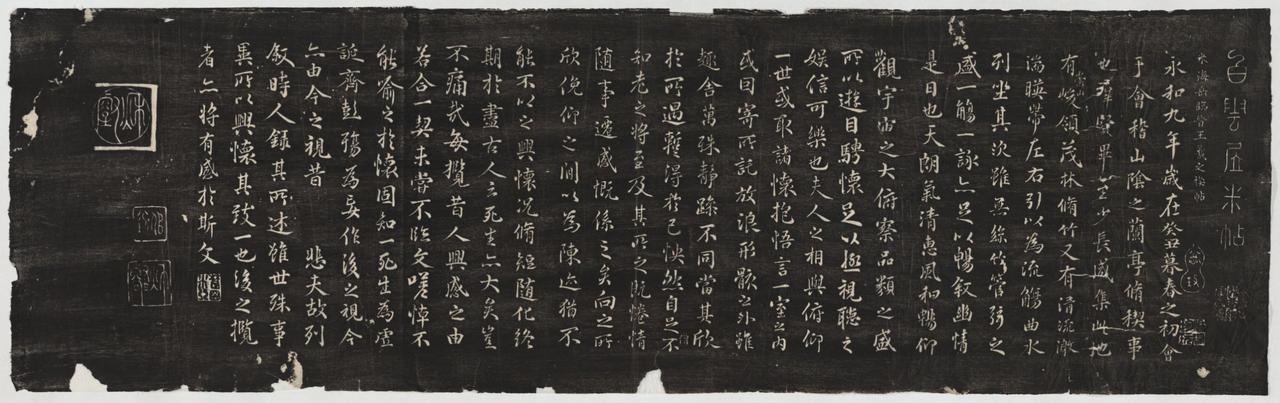 白雲居米帖
米海岳臨晉王羲之稧帖
永和九年歲在癸丑暮春之初會
于會稽山陰之蘭亭脩稧事
也群賢畢至少長咸集此地
有崇山峻領茂林脩竹又有清流激
湍暎帶左右引以為流觴曲水
列坐其次雖無絲竹管弦之
盛一觴一詠亦足以暢敘幽情
是日也天朗氣清惠風和暢仰
觀宇宙之大俯察品類之盛
所以遊目騁懷足以極視聽之
娛信可樂也夫人之相與俯仰
一世或取諸懷抱悟言一室之內
或因寄所託放浪形骸之外雖
趣舍萬殊靜躁不同當其欣
於所遇暫得於己怏然自足不
知老之將至及其所之既惓情
隨事遷感慨係之矣向之所
欣俛仰之間以為陳迹猶不
能不以之興懷況脩短隨化終
期於盡古人云死生亦大矣豈
不痛哉每攬昔人興感之由
若合一契未嘗不臨文嗟悼不
能喻之於懷固知一死生為虛
誕齊彭殤為妄作後之視今
亦由今之視昔 悲夫故列
敘時人錄其所述雖世殊事
異所以興懷其致一也後之攬
者亦將有感於斯文